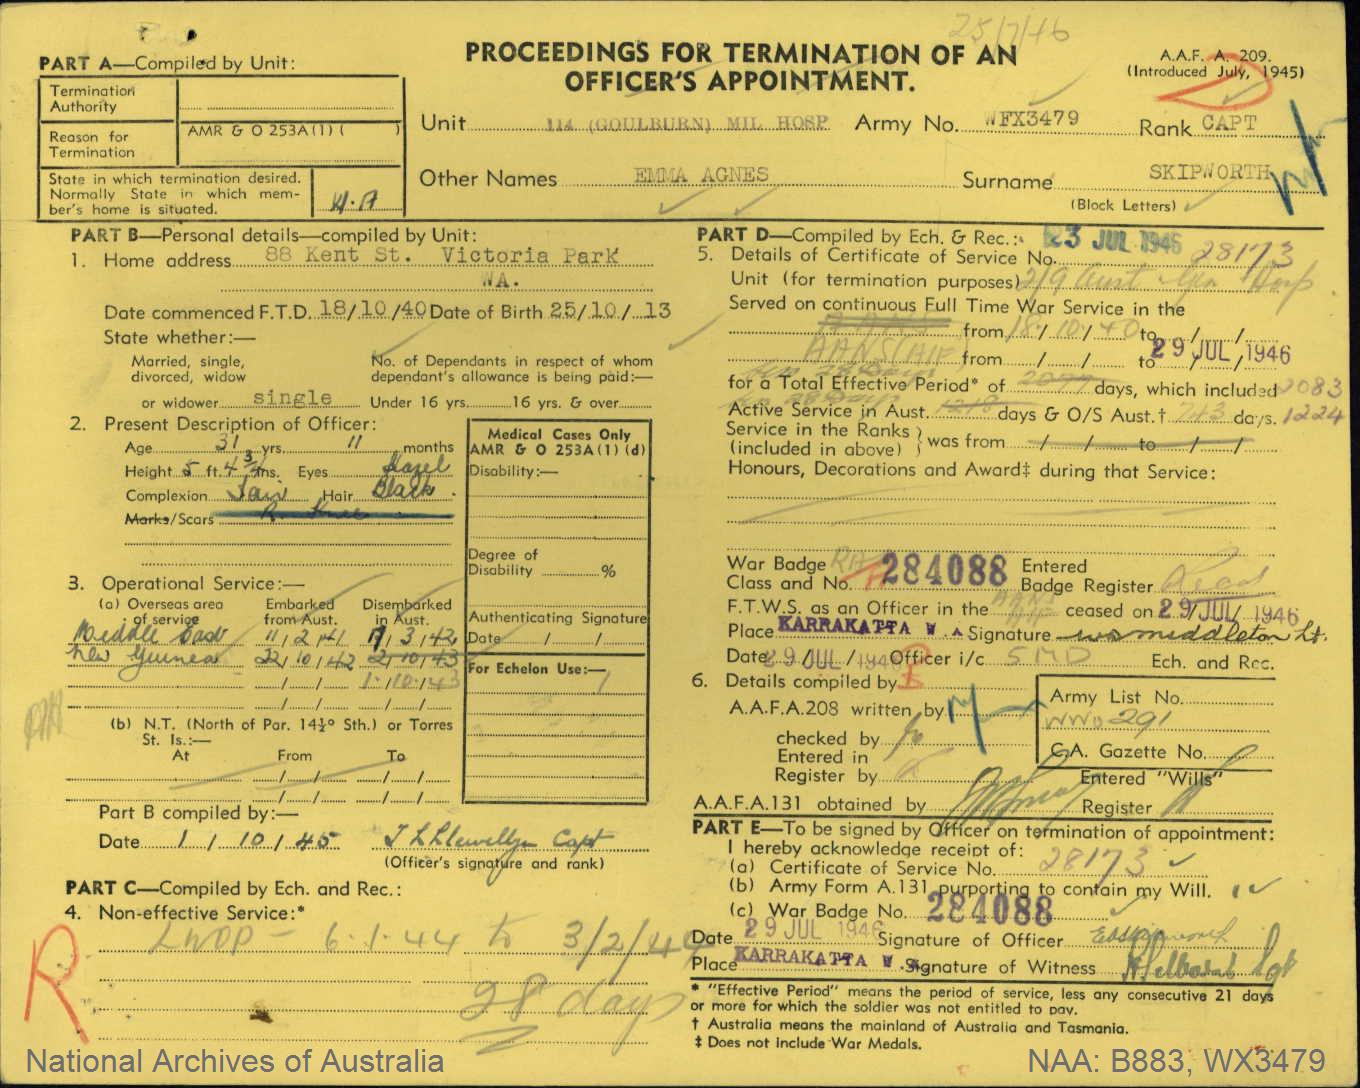 25/7/46
PROCEEDINGS FOR TERMINATION OF AN
OFFICER'S APPOINTMENT.
A.A.F. A. 209.
(Introduced July, 1945)
PART A—Compiled by Unit:
Termination
Authority
Reason for
Termination
AMR & O 253A(1) ( )
State in which termination desired.
Normally State in which mem-
ber's home is situated.
W.A
Unit 114 (GOULBURN) MIL HOSP Army No. WFX3479 Rank CAPT
Other Names EMMA AGNES Surname SKIPWORTH
(Block Letters)
PART B—Personal details—compiled by Unit:
1. Home address 88 Kent St. Victoria Park
WA.
Date commenced F.T.D. 18/10/40 Date of Birth 25/10/13
State whether:—
Married, single,
divorced, widow
or widower single
No. of Dependants in respect of whom
dependant's allowance is being paid:—
Under 16 yrs. 16 yrs. & over
2. Present Description of Officer:
Age 31 yrs. 11 months
Height 5 ft. 4 3/4 ins. Eyes Hazel
Complexion Fair Hair Black
Marks/Scars R. Knee
Medical Cases Only
AMR & O 253A(1) (d)
Disability:—
Degree of
Disability %
Authenticating Signature
Date / /
For Echelon Use:—
3. Operational Service:—
(a) Overseas area
of service
Embarked
from Aust.
Disembarked
in Aust.
Middle East 11/2/41 17/3/42
New Guinea 22/10/42 2/10/43
/ / 1/10/43
/ / / /
(b) N.T. (North of Par. 14½° Sth.) or Torres
St. Is.:—
At From To
/ / / /
/ / / /
Part B compiled by:—
Date 1/10/45 T L Llewellyn Capt
(Officer's signature and rank)
PART C—Compiled by Ech. and Rec.:
4. Non-effective Service:*
LWOP — 6.1.44 to 3/2/44
28 days
R
PART D—Compiled by Ech. & Rec.: 23 JUL 1946
5. Details of Certificate of Service No. 28173
Unit (for termination purposes) 2/9 Aust Gen Hosp
Served on continuous Full Time War Service in the
AANS from 18/10/40 to / /
AANS (AIF) from / / to 29 JUL 1946
for a Total Effective Period* of days, which included 2083
Active Service in Aust. 1218 days & O/S Aust.† 743 days. 1224
Service in the Ranks
(included in above) } was from / / to / /
Honours, Decorations and Award‡ during that Service:
War Badge
Class and No. 284088 Entered
Badge Register
F.T.W.S. as an Officer in the ceased on 29/JUL/1946
Place KARRAKATTA W.A Signature W S Middleton Lt.
Date 29 JUL 1946 Officer i/c SMD Ech. and Rec.
6. Details compiled by
A.A.F.A.208 written by
checked by
Entered in
Register by
Army List No.
WWO 291
C.A. Gazette No.
Entered "Wills"
A.A.F.A.131 obtained by Register
PART E—To be signed by Officer on termination of appointment:
I hereby acknowledge receipt of:
(a) Certificate of Service No. 28173
(b) Army Form A.131 purporting to contain my Will.
(c) War Badge No. 284088
Date 29 JUL 1946 Signature of Officer EASkipworth
Place KARRAKATTA W.A Signature of Witness Sgt
* "Effective Period" means the period of service, less any consecutive 21 days
or more for which the soldier was not entitled to pay.
† Australia means the mainland of Australia and Tasmania.
‡ Does not include War Medals.
National Archives of Australia
NAA: B883, WX3479